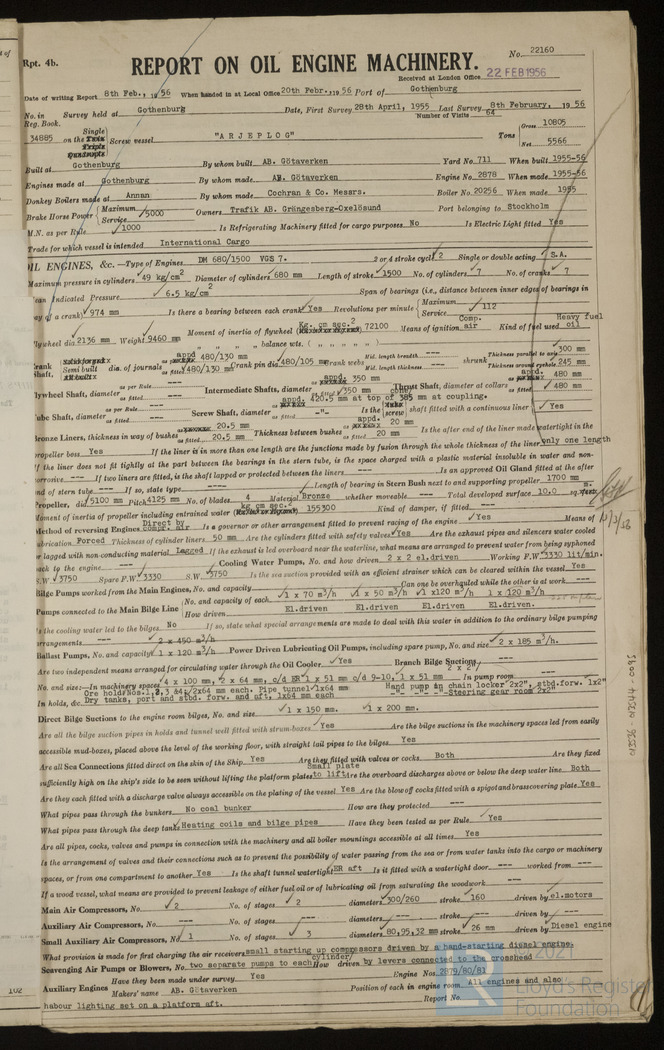 of
Rpt. 4b.
No. 22160
REPORT ON OIL ENGINE MACHINERY.
Received at London Office 22 FEB 1956
Date of writing Report 8th Feb., 1956 When handed in at Local Office 20th Febr., 1956 Port of Gothenburg
No. in Reg. Book. Survey held at Gothenburg Date, First Survey 28th April, 1955 Last Survey 8th February, 1956
Number of Visits 64
34885 on the Single Twin Triple Quadruple Screw vessel "ARJEPLOG" Tons Gross 10805 Net 5566
Built at Gothenburg By whom built AB. Götaverken Yard No. 711 When built 1955-56
Engines made at Gothenburg By whom made AB. Götaverken Engine No. 2878 When made 1955-56
Donkey Boilers made at Annan By whom made Cochran & Co. Messrs. Boiler No. 20256 When made 1955
Brake Horse Power Maximum Service 5000 Owners Trafik AB. Grängesberg-Oxelösund Port belonging to Stockholm
M.N. as per Rule 1000 Is Refrigerating Machinery fitted for cargo purposes No Is Electric Light fitted Yes
Trade for which vessel is intended International Cargo
OIL ENGINES, &c.—Type of Engines DM 680/1500 VGS 7. 2 or 4 stroke cycle 2 Single or double acting S.A.
Maximum pressure in cylinders 49 kg/cm² Diameter of cylinders 680 mm Length of stroke 1500 No. of cylinders 7 No. of cranks 7
Mean Indicated Pressure 6.5 kg/cm² Span of bearings (i.e., distance between inner edges of bearings in
way of a crank) 974 mm Is there a bearing between each crank Yes Revolutions per minute Maximum Service 112
Flywheel dia. 2136 mm Weight 9460 mm Moment of inertia of flywheel Kg. cm sec.² 72100 Means of ignition Comp. air Kind of fuel used Heavy fuel oil
" " " balance wts. ( " " " " )
Crank Shaft, Semi built dia. of journals appd 480/130 mm as fitted 480/130 mm Crank pin dia. 480/105 mm Crank webs Mid. length breadth --- Mid. length thickness --- shrunk Thickness parallel to axis 300 mm Thickness around eyehole 245 mm
Flywheel Shaft, diameter as per Rule --- as fitted --- Intermediate Shafts, diameter appd. 350 mm as fitted 350 mm Thrust Shaft, diameter at collars appd. 480 mm as fitted 480 mm
Tube Shaft, diameter as per Rule --- as fitted --- Screw Shaft, diameter appd. 420.5 mm at top of cone, 385 mm at coupling. as fitted -"- Is the screw shaft fitted with a continuous liner Yes
Bronze Liners, thickness in way of bushes 20.5 mm as fitted 20.5 mm Thickness between bushes appd. 20 mm as fitted 20 mm Is the after end of the liner made watertight in the
propeller boss Yes If the liner is in more than one length are the junctions made by fusion through the whole thickness of the liner only one length
If the liner does not fit tightly at the part between the bearings in the stern tube, is the space charged with a plastic material insoluble in water and non-
corrosive --- If two liners are fitted, is the shaft lapped or protected between the liners --- Is an approved Oil Gland fitted at the after
end of stern tube --- If so, state type --- Length of bearing in Stern Bush next to and supporting propeller 1700 mm
Propeller, dia. 5100 mm Pitch 4125 mm No. of blades 4 Material Bronze whether moveable --- Total developed surface 10.0 sq. m.
Moment of inertia of propeller including entrained water kg cm sec.² 155300 Kind of damper, if fitted ---
Method of reversing Engines Direct by compr. air Is a governor or other arrangement fitted to prevent racing of the engine Yes Means of
lubrication Forced Thickness of cylinder liners 50 mm Are the cylinders fitted with safety valves Yes Are the exhaust pipes and silencers water cooled
or lagged with non-conducting material Lagged If the exhaust is led overboard near the waterline, what means are arranged to prevent water from being syphoned
back to the engine --- Cooling Water Pumps, No. and how driven 2 x 2 el.driven Working F.W. 3330 lit/min.
S.W. 3750 Spare F.W. 3330 S.W. 3750 Is the sea suction provided with an efficient strainer which can be cleared within the vessel Yes
Bilge Pumps worked from the Main Engines, No. and capacity --- Can one be overhauled while the other is at work ---
Pumps connected to the Main Bilge Line No. and capacity of each 1 x 70 m³/h 1 x 50 m³/h 1 x120 m³/h 1 x 120 m³/h
How driven El.driven El.driven El.driven El.driven.
Is the cooling water led to the bilges No If so, state what special arrangements are made to deal with this water in addition to the ordinary bilge pumping
arrangements ---
Ballast Pumps, No. and capacity 2 x 450 m³/h 1 x 120 m³/h Power Driven Lubricating Oil Pumps, including spare pump, No. and size 2 x 185 m³/h.
Are two independent means arranged for circulating water through the Oil Cooler Yes Branch Bilge Suctions,
No. and size:—In machinery spaces 4 x 100 mm, 2 x 64 mm, c/d ER 1 x 51 mm c/d 9-10, 1 x 51 mm In pump room 2 x 2"
In holds, &c. Ore hold: Nos. 1, 2, 3 & 4: 2x64 mm each. Pipe tunnel 1x64 mm Hand pump in chain locker 2x2", stbd.forw. 1x2"
Dry tanks, port and stbd. forw. and aft. 1x64 mm each -"- -"- -Steering gear room 2x2"
Direct Bilge Suctions to the engine room bilges, No. and size. 1 x 150 mm. 1 x 200 mm.
Are all the bilge suction pipes in holds and tunnel well fitted with strum-boxes Yes Are the bilge suctions in the machinery spaces led from easily
accessible mud-boxes, placed above the level of the working floor, with straight tail pipes to the bilges Yes
Are all Sea Connections fitted direct on the skin of the Ship Yes Are they fitted with valves or cocks Both Are they fixed
sufficiently high on the ship's side to be seen without lifting the platform plates Small plate to lift Are the overboard discharges above or below the deep water line Both
Are they each fitted with a discharge valve always accessible on the plating of the vessel Yes Are the blow off cocks fitted with a spigot and brass covering plate Yes
What pipes pass through the bunkers No coal bunker How are they protected ---
What pipes pass through the deep tanks Heating coils and bilge pipes Have they been tested as per Rule Yes
Are all pipes, cocks, valves and pumps in connection with the machinery and all boiler mountings accessible at all times Yes
Is the arrangement of valves and their connections such as to prevent the possibility of water passing from the sea or from water tanks into the cargo or machinery
spaces, or from one compartment to another Yes Is the shaft tunnel watertight ER aft Is it fitted with a watertight door --- worked from ---
If a wood vessel, what means are provided to prevent leakage of either fuel oil or of lubricating oil from saturating the woodwork ---
Main Air Compressors, No. 2 No. of stages 2 diameters 300/260 stroke 160 driven by el.motors
Auxiliary Air Compressors, No. --- No. of stages --- diameters --- stroke --- driven by ---
Small Auxiliary Air Compressors, No. 1 No. of stages 3 diameters 80,95,32 mm stroke 26 mm driven by Diesel engine
What provision is made for first charging the air receivers small starting up compressors driven by a hand-starting diesel engine.
Scavenging Air Pumps or Blowers, No. two separate pumps to each cylinder/ How driven by levers connected to the crosshead
Auxiliary Engines Have they been made under survey Yes Engine Nos. 2879/80/81
Makers' name AB. Götaverken Position of each in engine room All engines and also
habour lighting set on a platform aft. Report No.
102
012536-012544-0095
© 2021
Lloyd's Register
Foundation